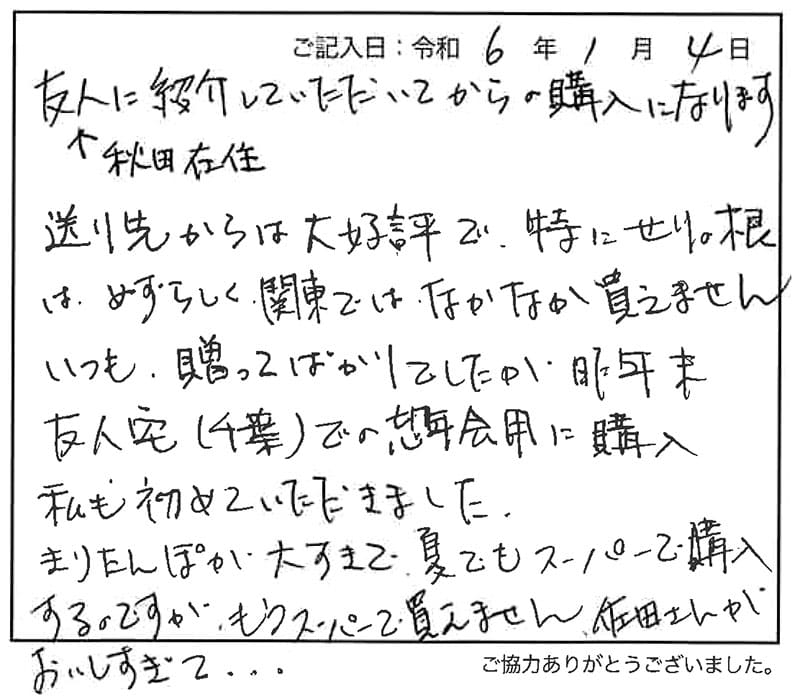 ご記入日：令和 6 年 1 月 4 日
友人に紹介していただいてからの購入になります
↑秋田在住
送り先からは大好評で、特にせりの根
は、めずらしく、関東では、なかなか買えません
いつも、贈ってばかりでしたが、昨年末
友人宅(千葉)での忘年会用に購入
私も初めていただきました。
きりたんぽが大すきで、夏でもスーパーで購入
するのですが、もうスーパーで買えません、佐田さんが
おいしすぎて...
ご協力ありがとうございました。